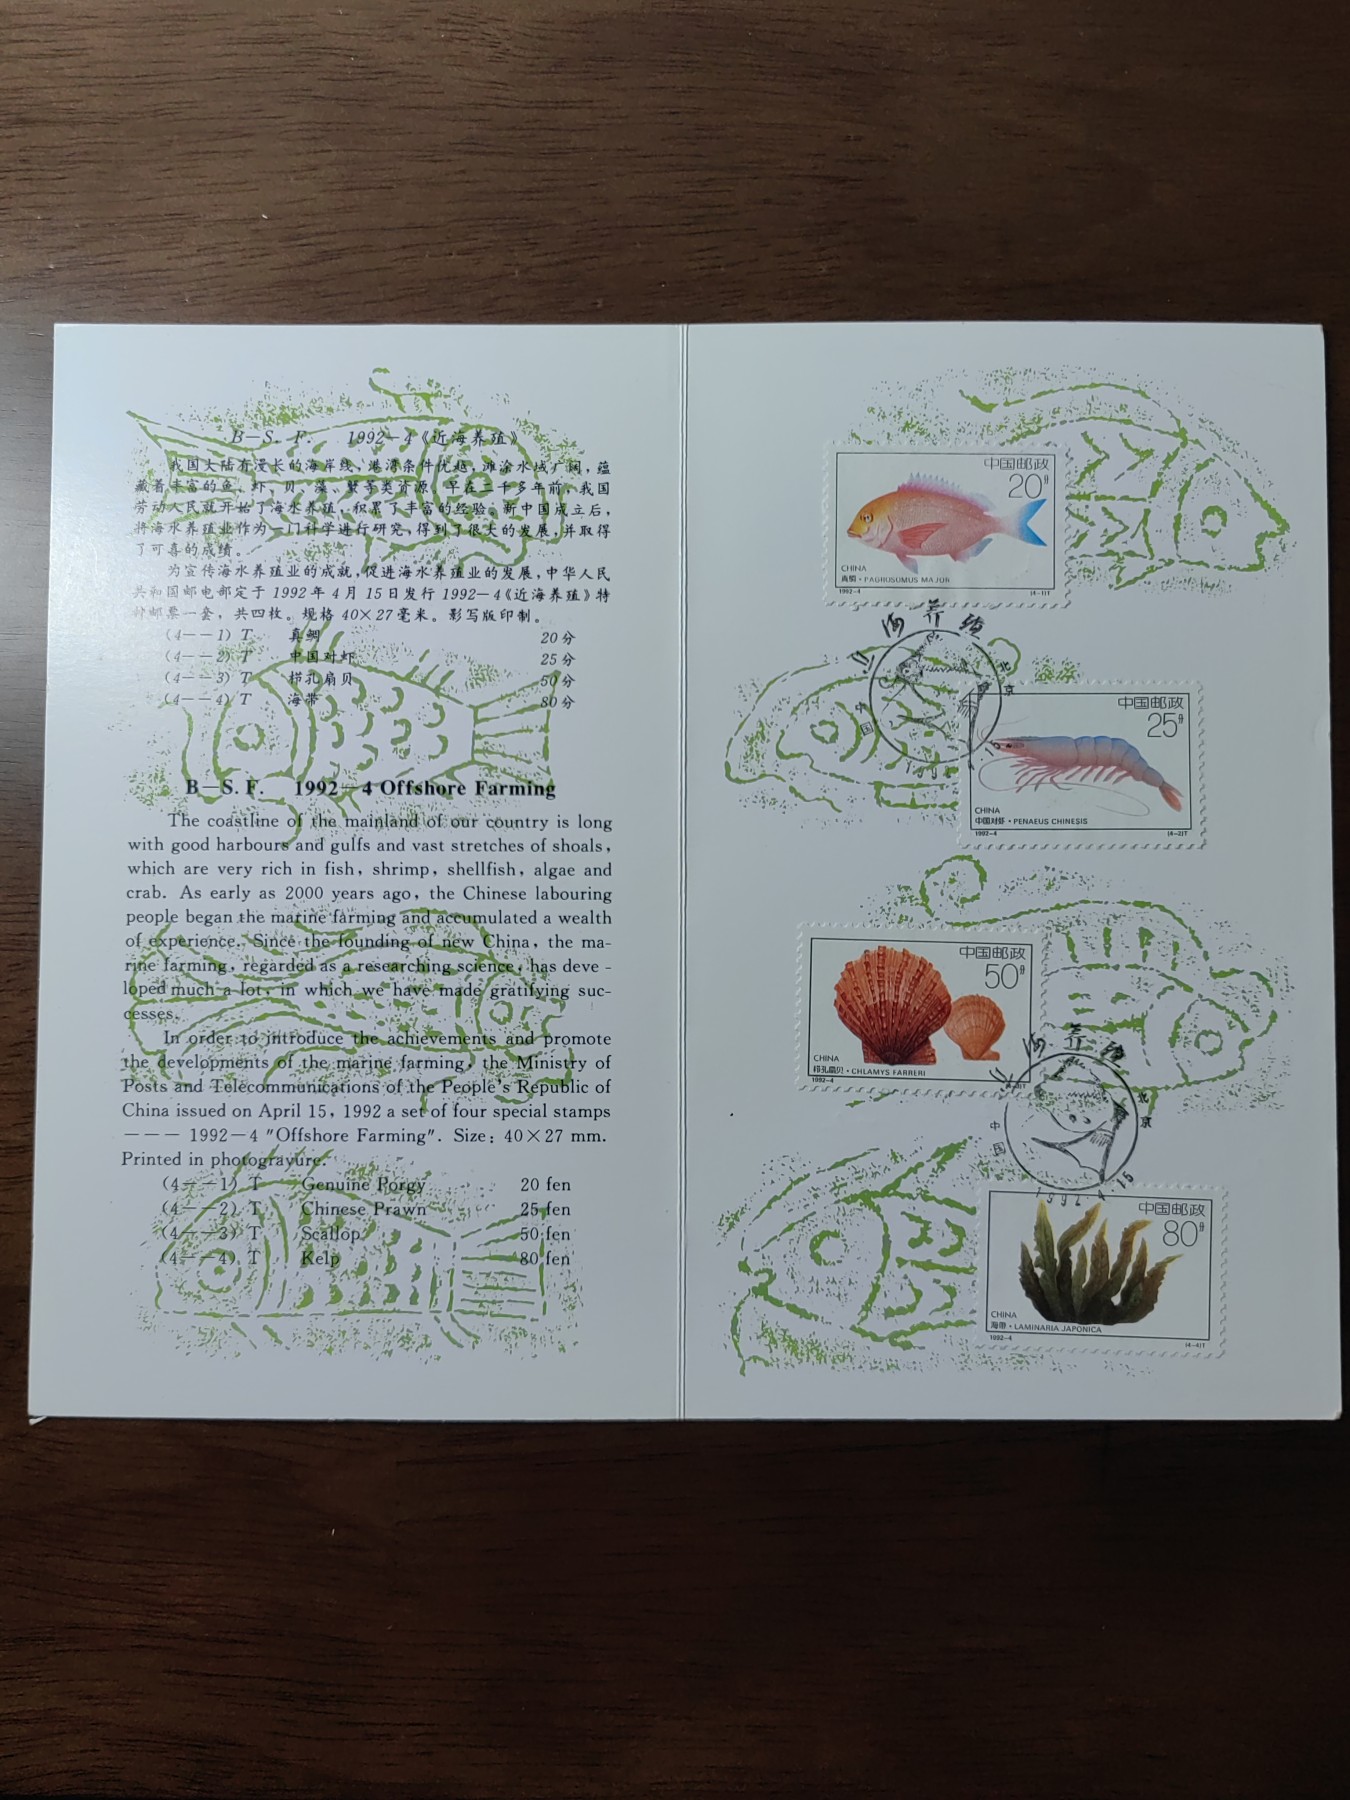 B－S. F. 1992－4《近海养殖》
我国大陆有漫长的海岸线,港湾条件优越,滩涂水域广阔,蕴
藏着丰富的鱼、虾、贝、藻、蟹等类资源。早在二千多年前,我国
劳动人民就开始了海水养殖,积累了丰富的经验。新中国成立后,
将海水养殖业作为一门科学进行研究,得到了很大的发展,并取得
了可喜的成绩。
为宣传海水养殖业的成就,促进海水养殖业的发展,中华人民
共和国邮电部定于 1992 年 4 月 15 日发行 1992－4《近海养殖》特
种邮票一套，共四枚。规格 40×27 毫米。影写版印制。
(4——1) T 真鲷 20 分
(4——2) T 中国对虾 25 分
(4——3) T 栉孔扇贝 50 分
(4——4) T 海带 80 分
B—S. F. 1992—4 Offshore Farming
The coastline of the mainland of our country is long
with good harbours and gulfs and vast stretches of shoals,
which are very rich in fish, shrimp, shellfish, algae and
crab. As early as 2000 years ago, the Chinese labouring
people began the marine farming and accumulated a wealth
of experience. Since the founding of new China, the ma-
rine farming, regarded as a researching science, has deve -
loped much a lot, in which we have made gratifying suc-
cesses.
In order to introduce the achievements and promote
the developments of the marine farming, the Ministry of
Posts and Telecommunications of the People's Republic of
China issued on April 15, 1992 a set of four special stamps
——— 1992—4 "Offshore Farming". Size: 40×27 mm.
Printed in photograyure.
(4——1) T Genuine Porgy 20 fen
(4——2) T Chinese Prawn 25 fen
(4——3) T Scallop 50 fen
(4——4) T Kelp 80 fen
中国邮政
20分
CHINA
真鲷・PAGRUSOMUS MAJOR
1992-4 (4-1)T
海养殖
中国
北京
1992
中国邮政
25分
CHINA
中国对虾・PENAEUS CHINESIS
1992-4 (4-2)T
中国邮政
50分
CHINA
栉孔扇贝・CHLAMYS FARRERI
1992-4
海养殖
中国
北京
1992.4.15
中国邮政
80分
CHINA
海带・LAMINARIA JAPONICA
1992-4 (4-4)T